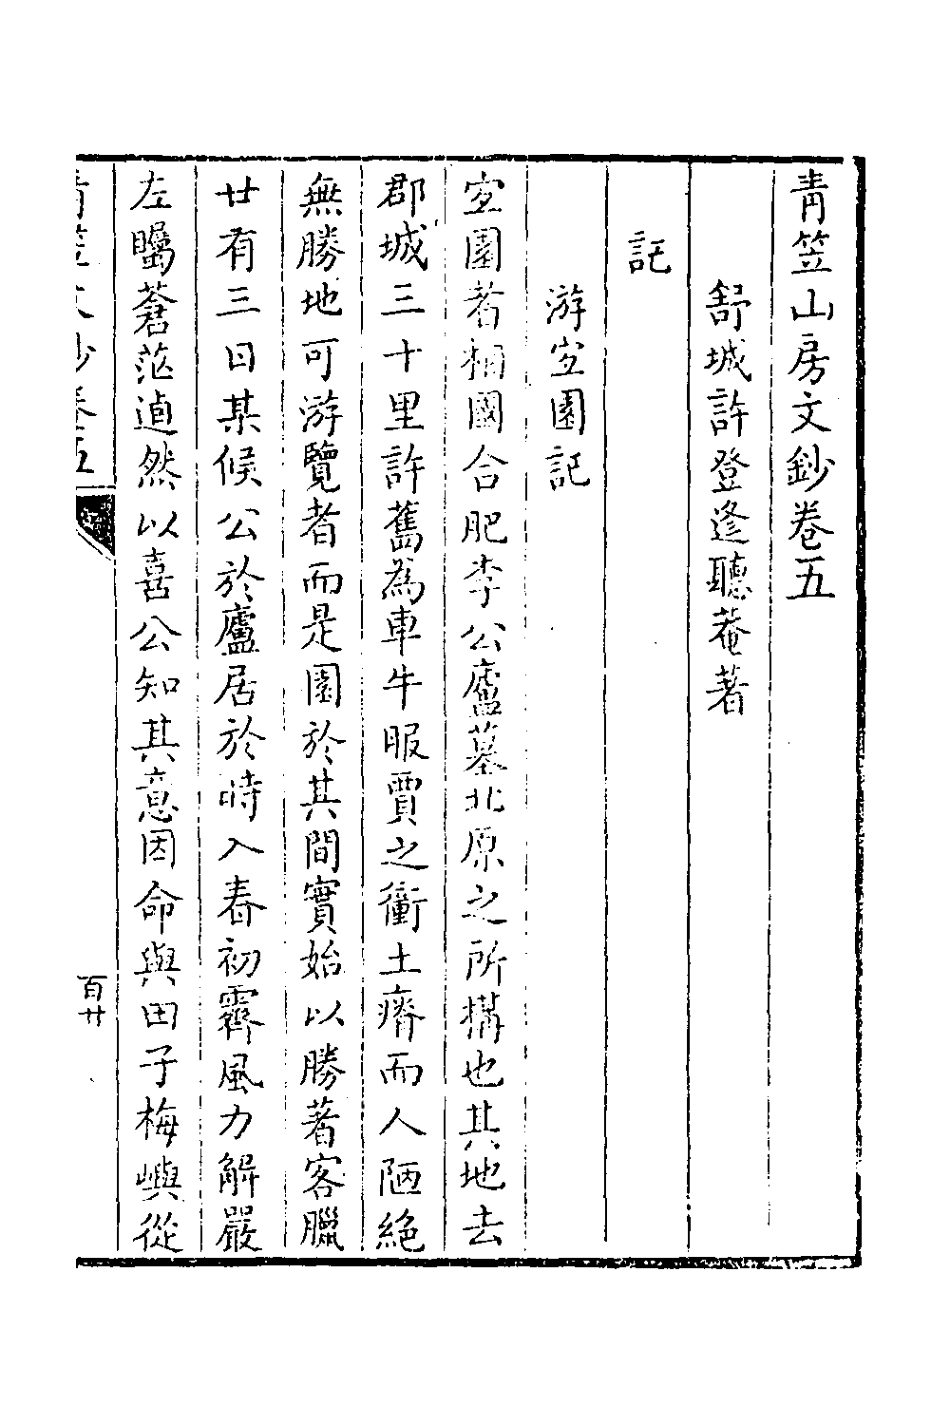 青笠山房文鈔卷五
舒城許登逢聽菴著
記
游空園記
空園者相國合肥李公廬墓北原之所搆也其地去
郡城三十里許舊為車牛服賈之衝土瘠而人陋絕
無勝地可游覽者而是園於其間實始以勝著客臘
廿有三日某候公於廬居於時入春初霽風力解嚴
左矚蒼茫逌然以喜公知其意因命與田子梅嶼從
青笠文鈔卷五
百廿